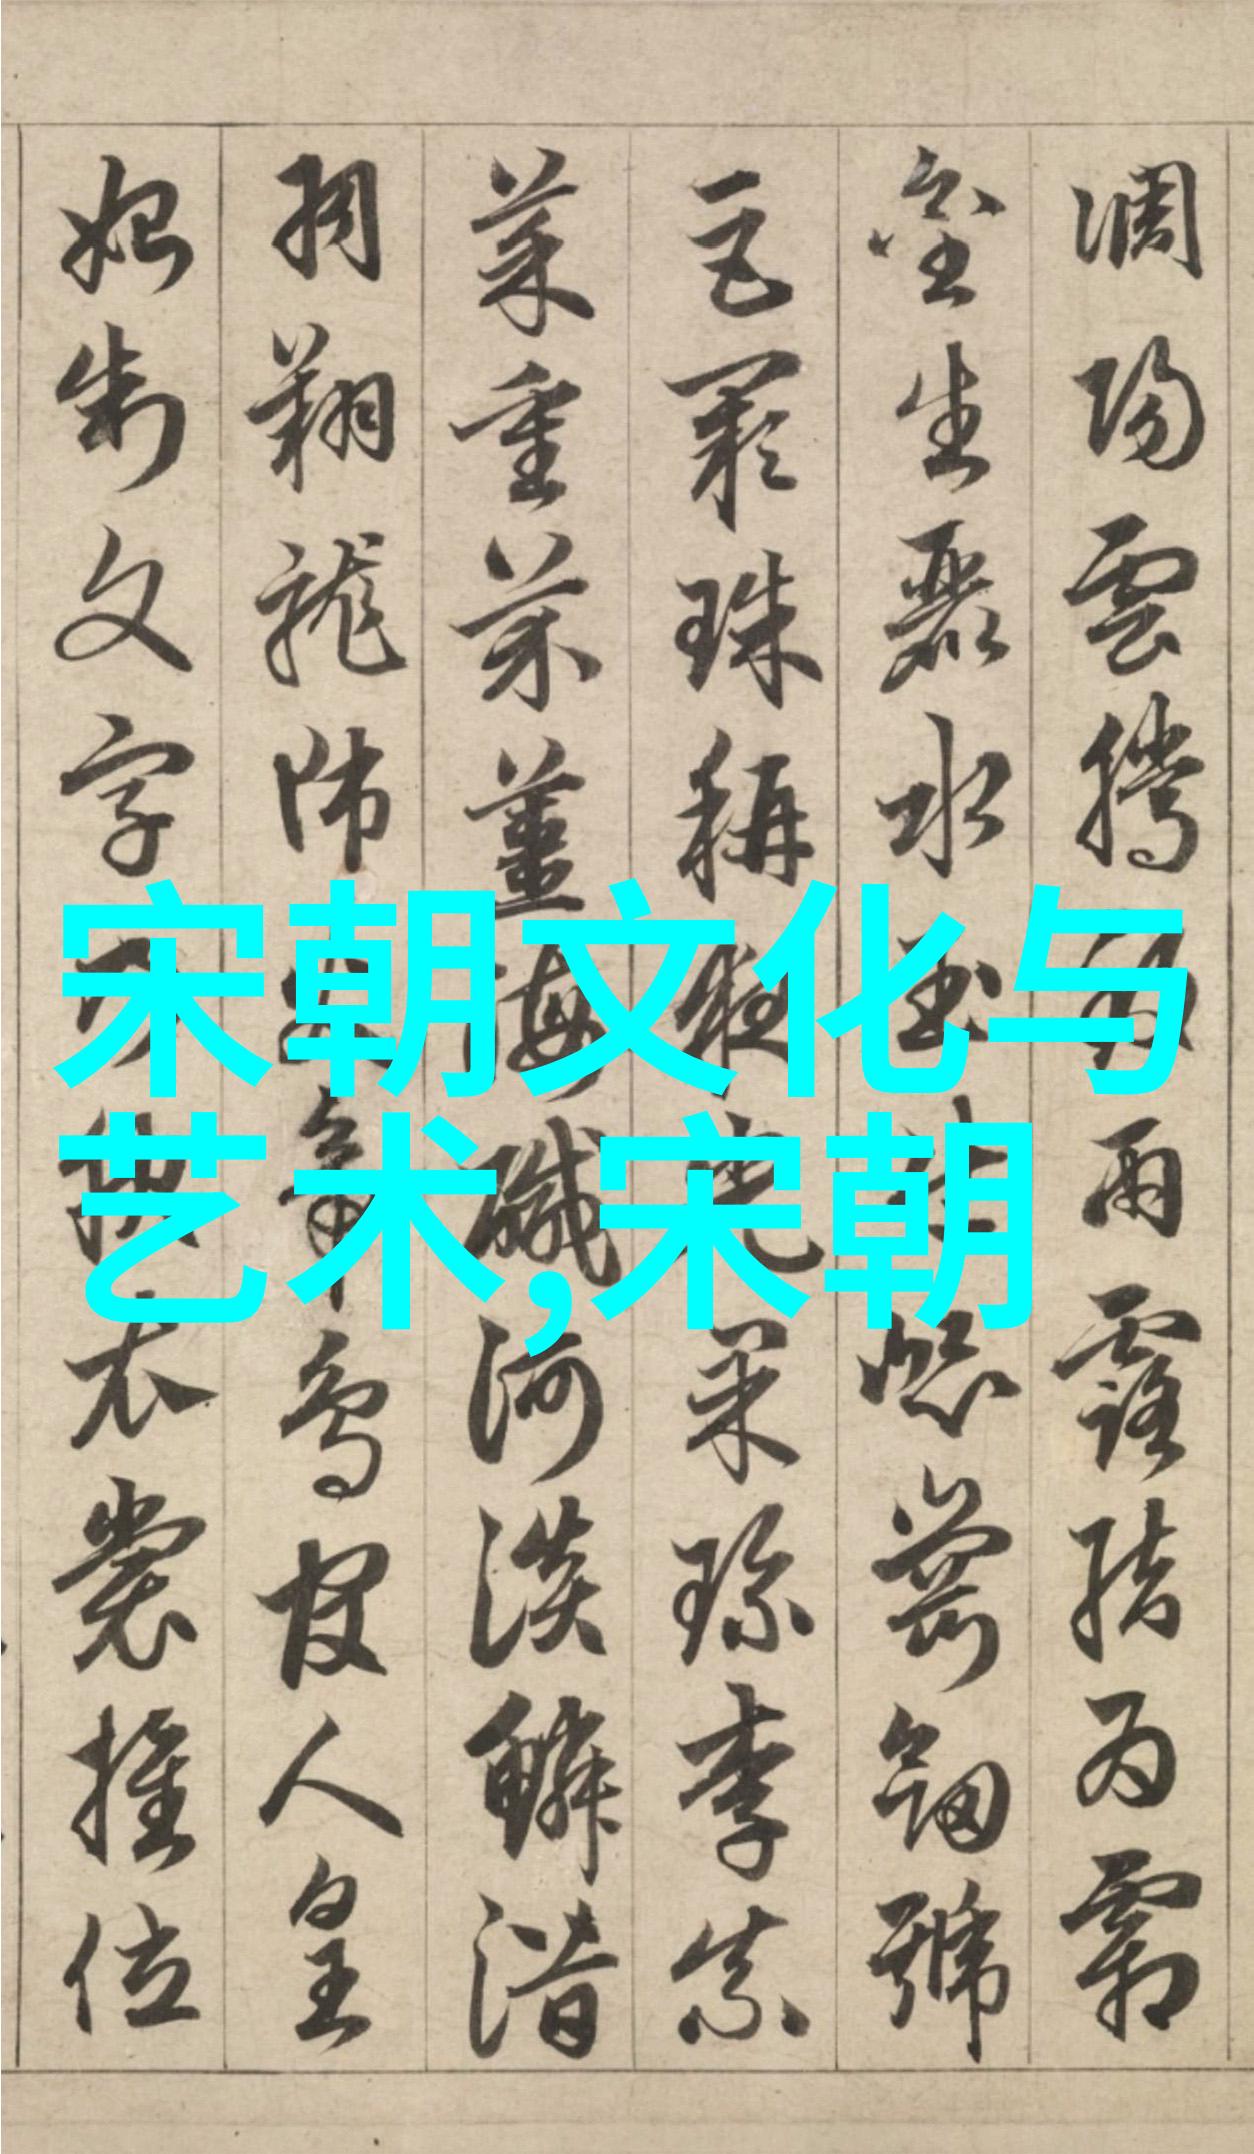 調陽雲騰致雨露結為霜
金生麗水玉出崑岡劍號
巨闕珠稱夜光果珎李柰
菜重芥薑海鹹河淡鱗潛
羽翔龍師火帝鳥官人皇
始制文字乃服衣裳推位
宋朝文化与
艺术,宋朝